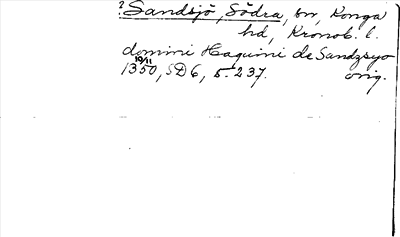 ? Sandsjö, Södra, sn, Konga
hd, Kronob. l.
domini Haquini de Sandzsyo
19/11
1350, SD 6, s. 237. orig.